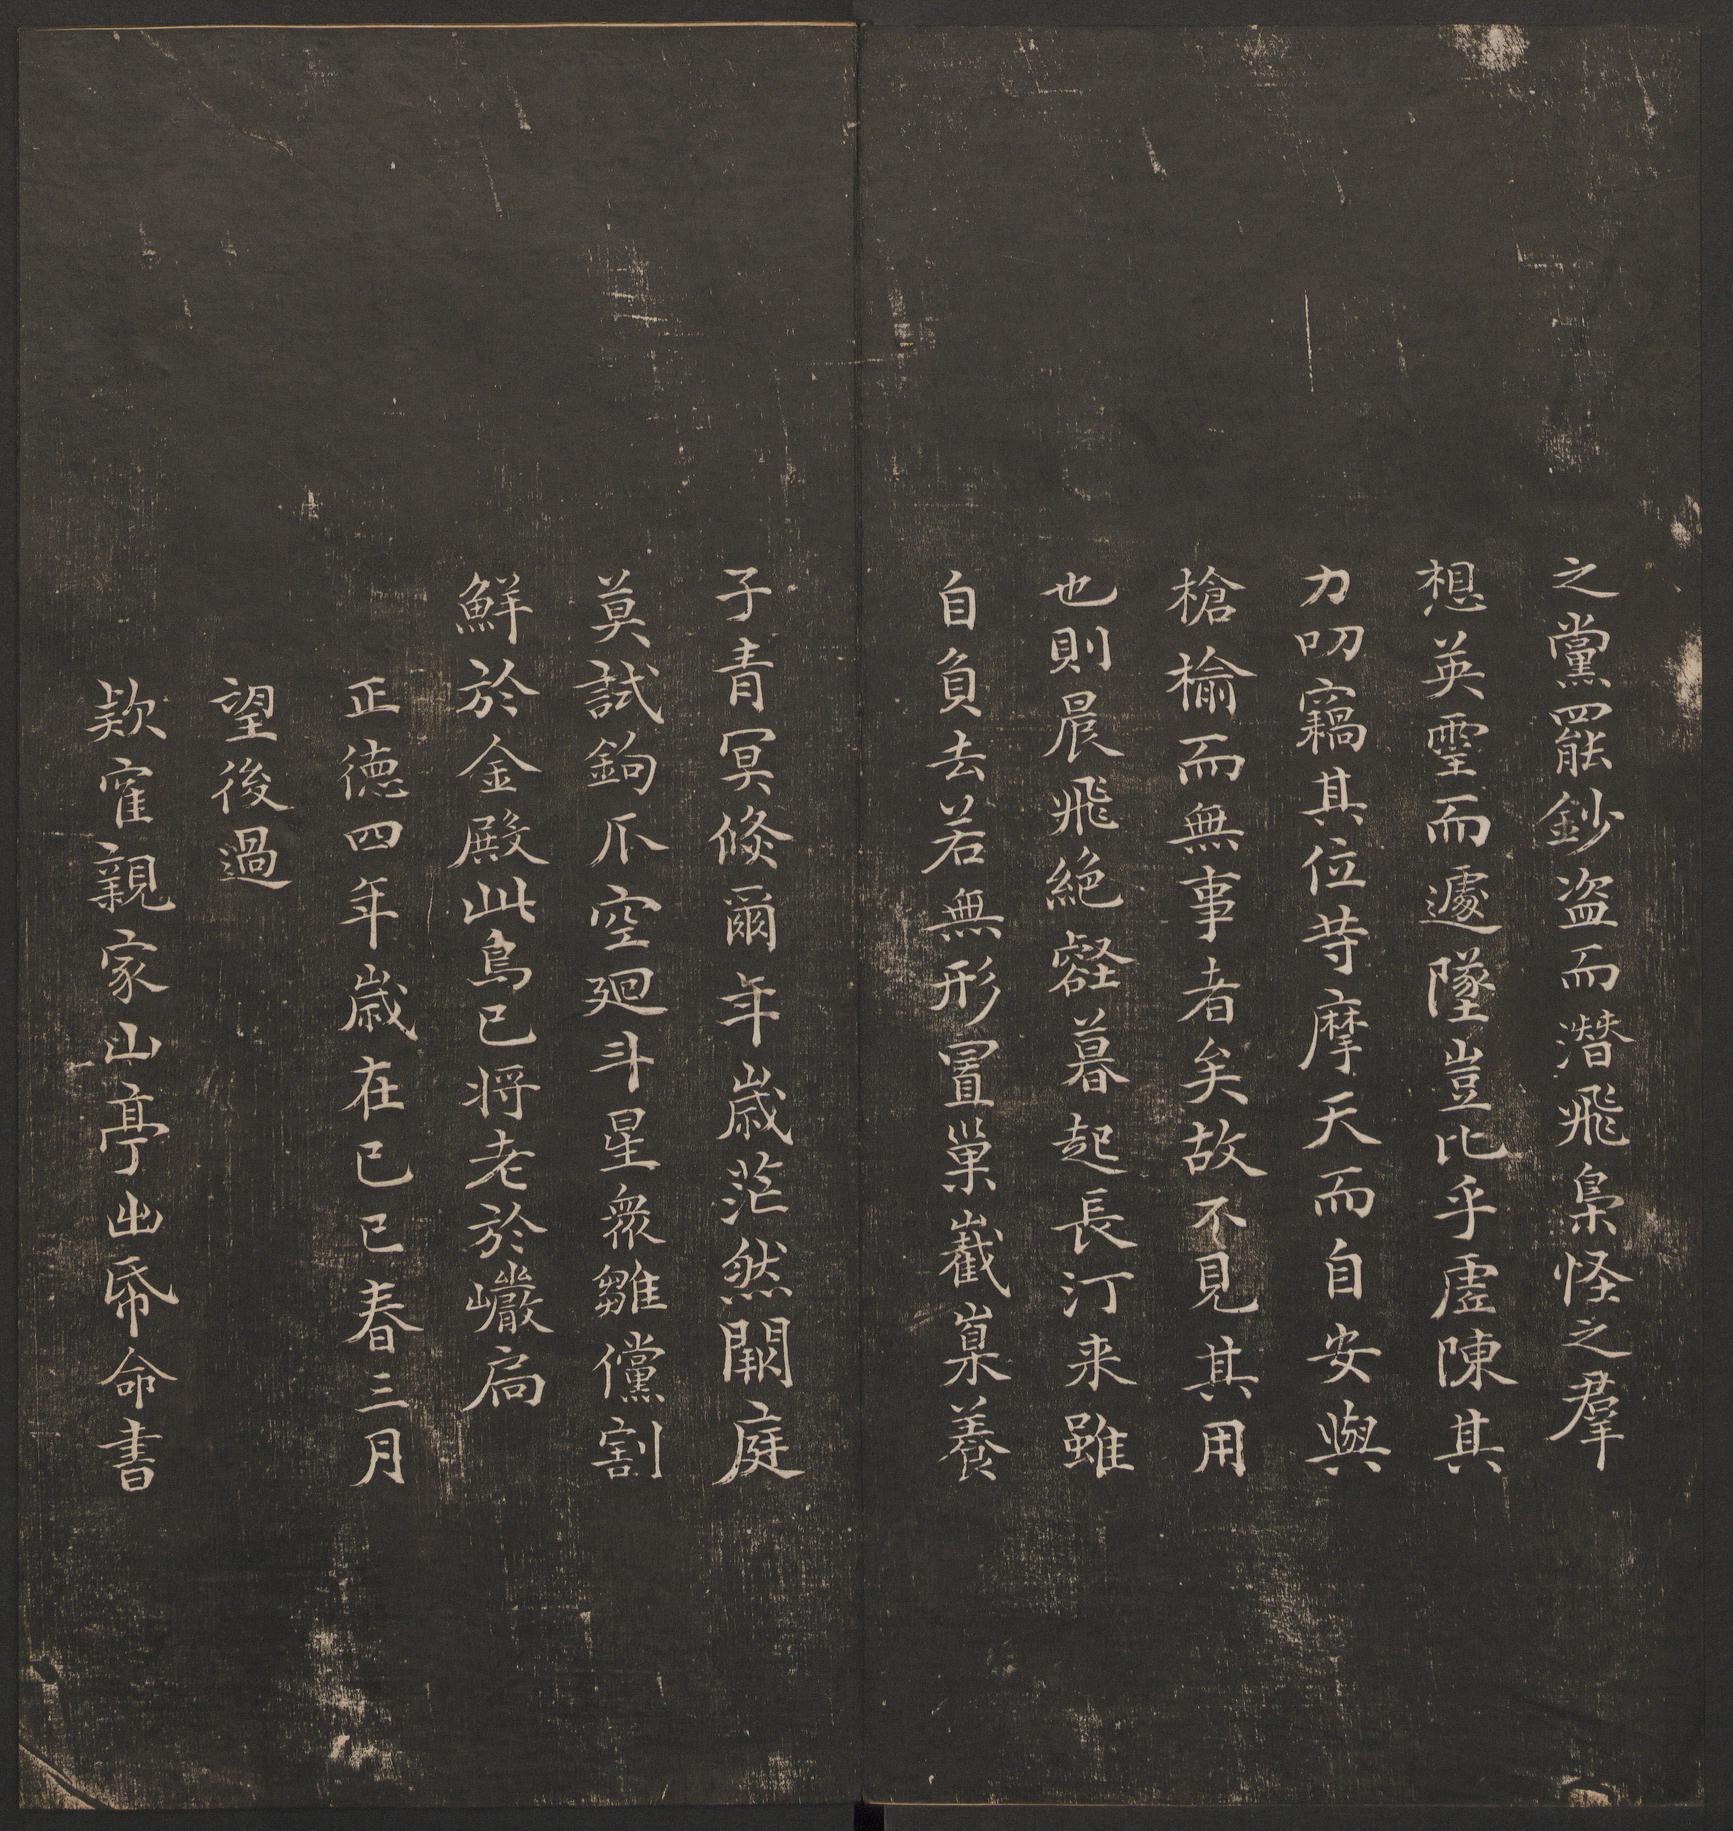 之黨罷鈔盜而潛飛梟怪之羣
想英霊而遽墜豈比乎虛陳其
力叨竊其位等摩天而自安與
槍榆而無事者矣故不見其用
也則晨飛絕壑暮起長汀来雖
自負去若無形置巢巀嶪養
子青冥倏爾年歲茫然闕庭
莫試鉤爪空廻斗星衆雛儻割
鮮於金殿此鳥已将老於巖扃
正德四年歲在己巳春三月
望後過
欵寉親家山亭出帋命書